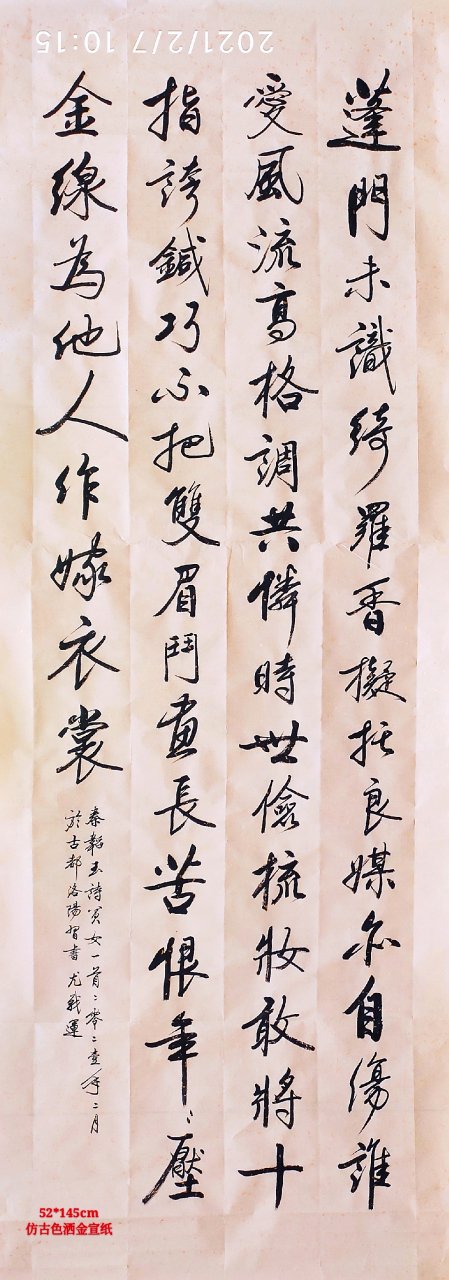 2021/2/7 10:15
蓬門未識綺羅香擬託良媒亦自傷誰
愛風流高格調共憐時世儉梳妝敢將十
指誇鍼巧不把雙眉鬥畫長苦恨年〻壓
金線為他人作嫁衣裳
秦韜玉詩貧女一首二零二壹年二月
於古都洛陽習書尤戰運
52*145cm
仿古色洒金宣纸